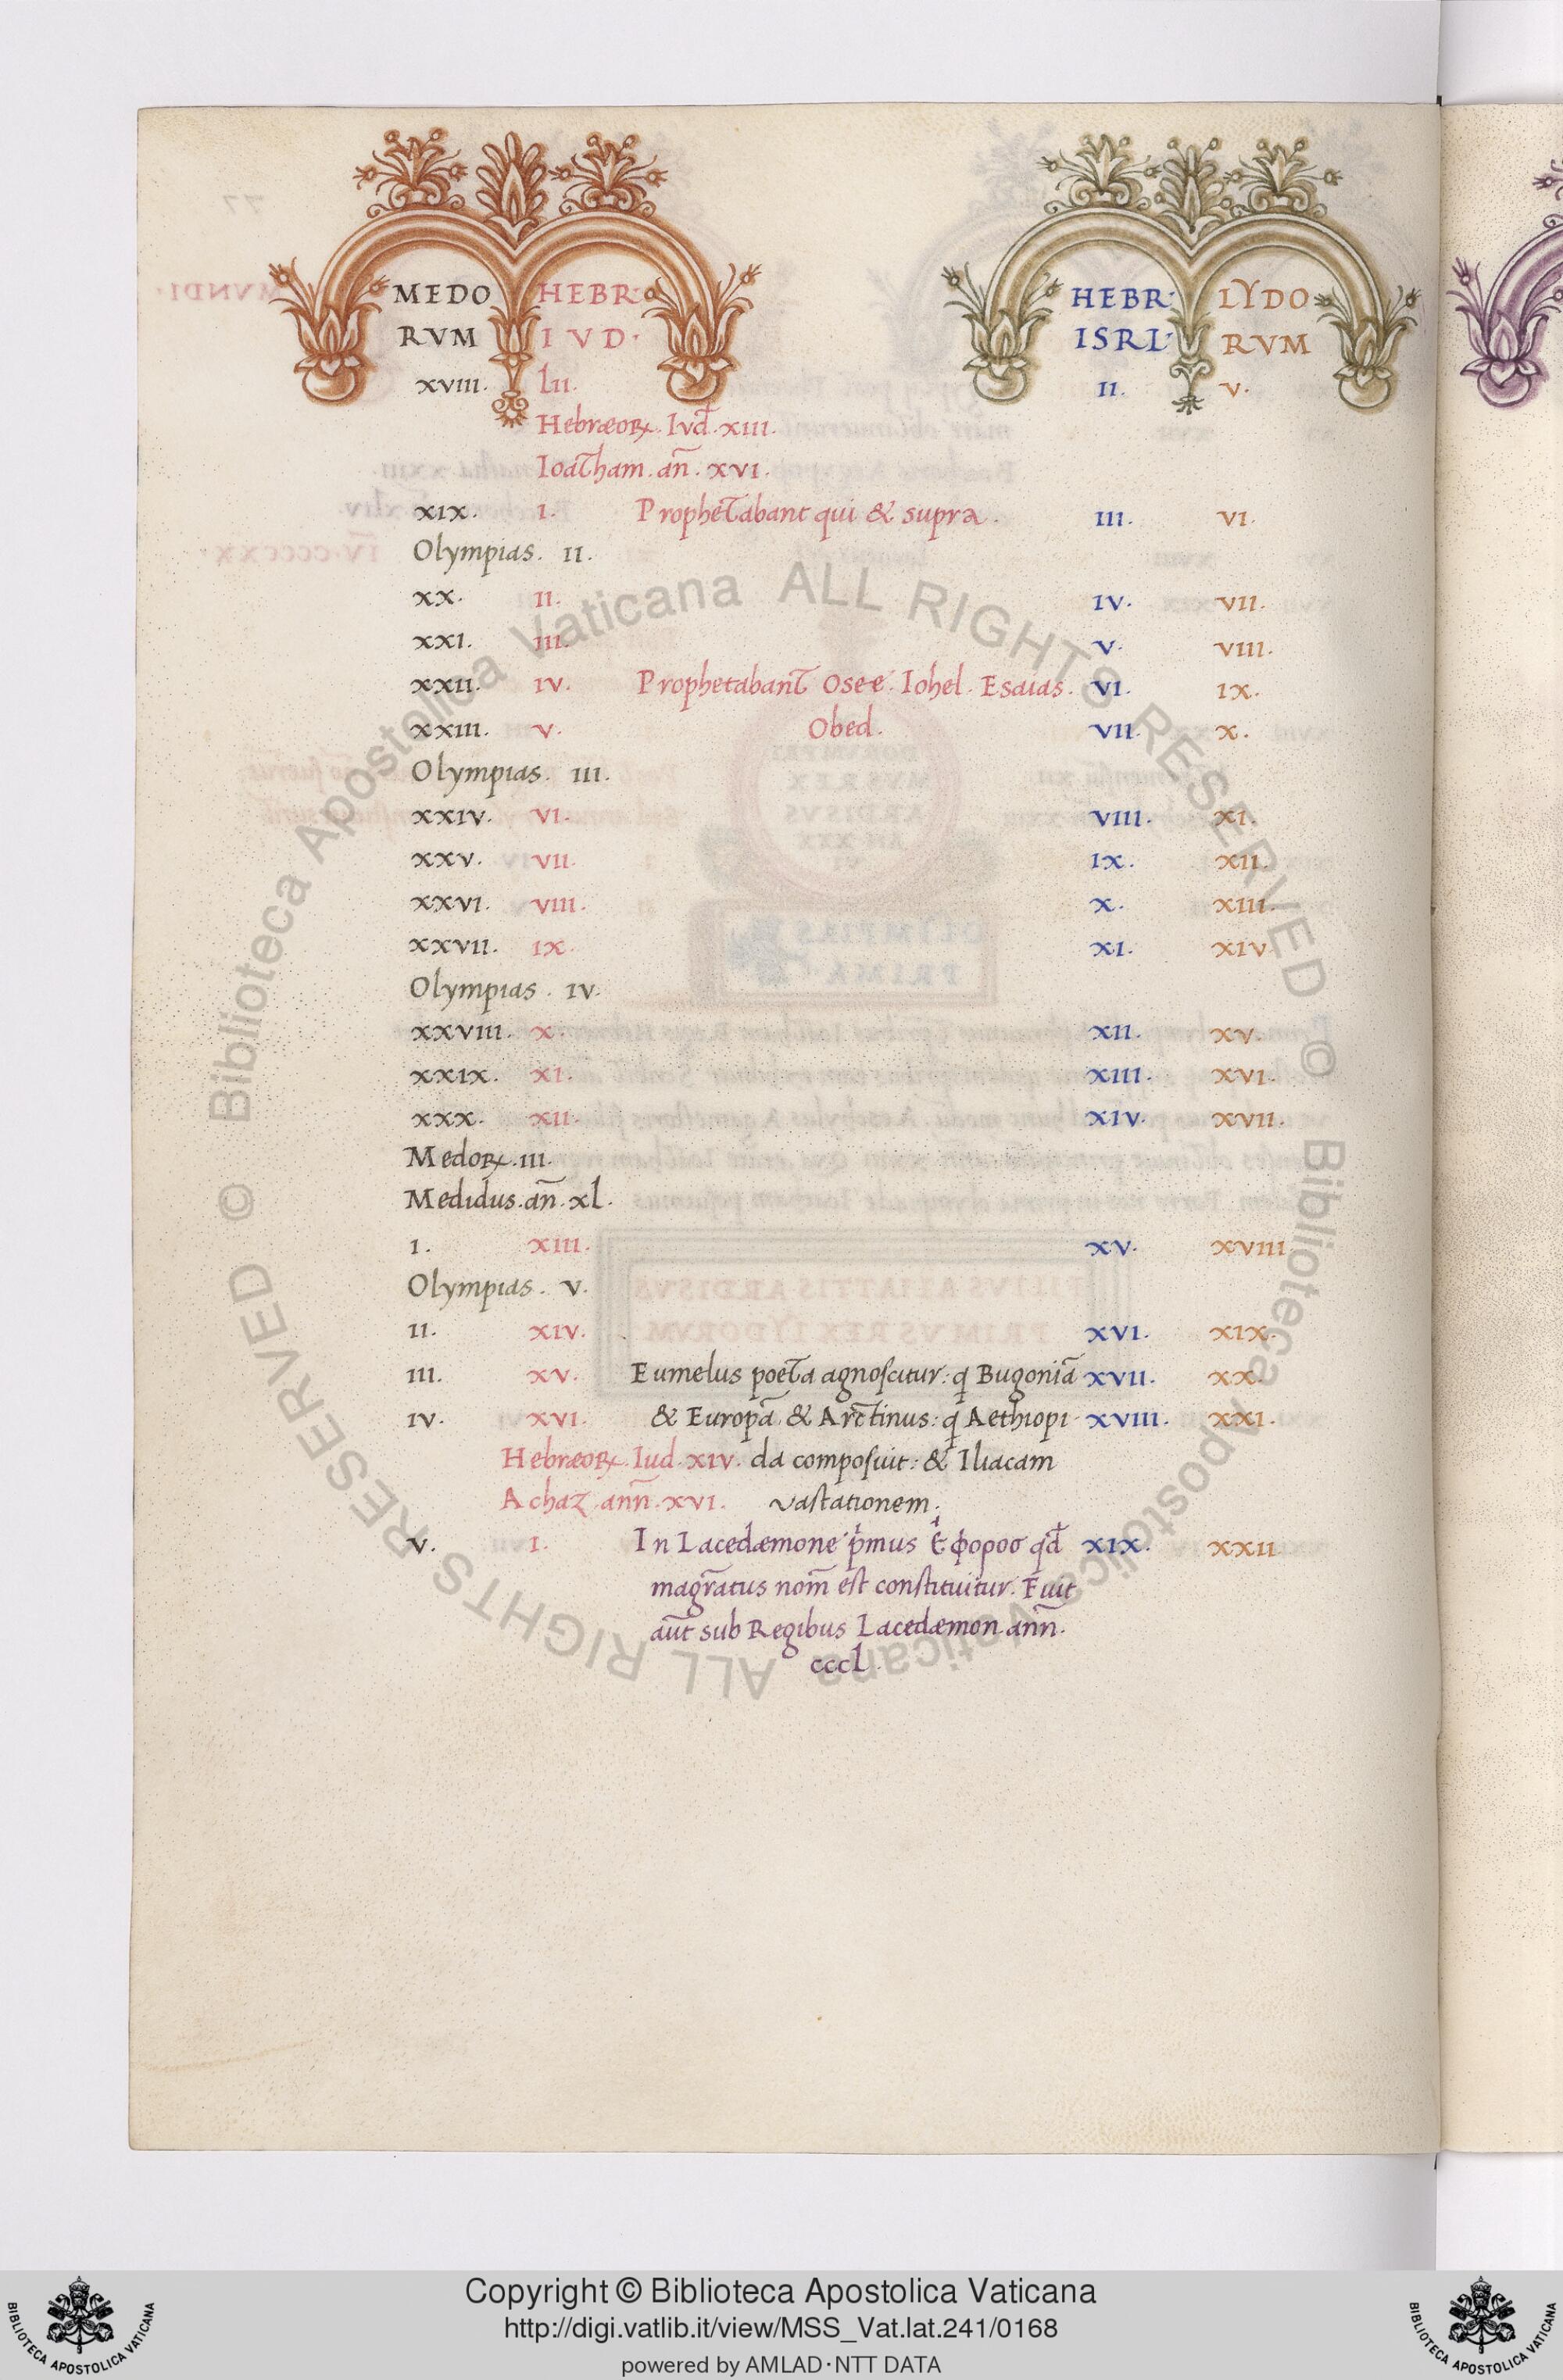 MEDO HEBR· HEBR· LYDO
RVM IVD· ISRL· RVM
XVIII. LII. II. V.
Hebræoꝝ. Ivd̄. XIII.
Ioatham. an̄. XVI.
XIX. I. Prophetabant qui & supra. III. VI.
Olympias. II.
XX. II. IV. VII.
XXI. III. V. VIII.
XXII. IV. Prophetabant Osee. Iohel. Esaias. VI. IX.
XXIII. V. Obed. VII. X.
Olympias. III.
XXIV. VI. VIII. XI.
XXV. VII. IX. XII.
XXVI. VIII. X. XIII.
XXVII. IX. XI. XIV.
Olympias. IV.
XXVIII. X. XII. XV.
XXIX. XI. XIII. XVI.
XXX. XII. XIV. XVII.
Medoꝝ. III.
Medidus. an̄. xl.
I. XIII. XV. XVIII.
Olympias. V.
II. XIV. XVI. XIX.
III. XV. Eumelus poeta agnoscitur: q̄ Bugoniā XVII. XX.
IV. XVI. & Europā & Arctinus: q̄ Aethiopi XVIII. XXI.
Hebræoꝝ. Iud. XIV. da composuit: & Iliacam
Achaz. ann̄. XVI. vastationem.
V. I. In Lacedæmone pͥmus ἔφορος qd̄ XIX. XXII
magr̄atus nom̄ est constituitur. Fuit
aūt sub Regibus Lacedæmon. ann̄.
cccl.
© Biblioteca Apostolica Vaticana ALL RIGHTS RESERVED © Biblioteca Apostolica Vaticana ALL RIGHTS RESERVED
Copyright © Biblioteca Apostolica Vaticana
http://digi.vatlib.it/view/MSS_Vat.lat.241/0168
powered by AMLAD·NTT DATA
BIBLIOTECA APOSTOLICA VATICANA
BIBLIOTECA APOSTOLICA VATICANA